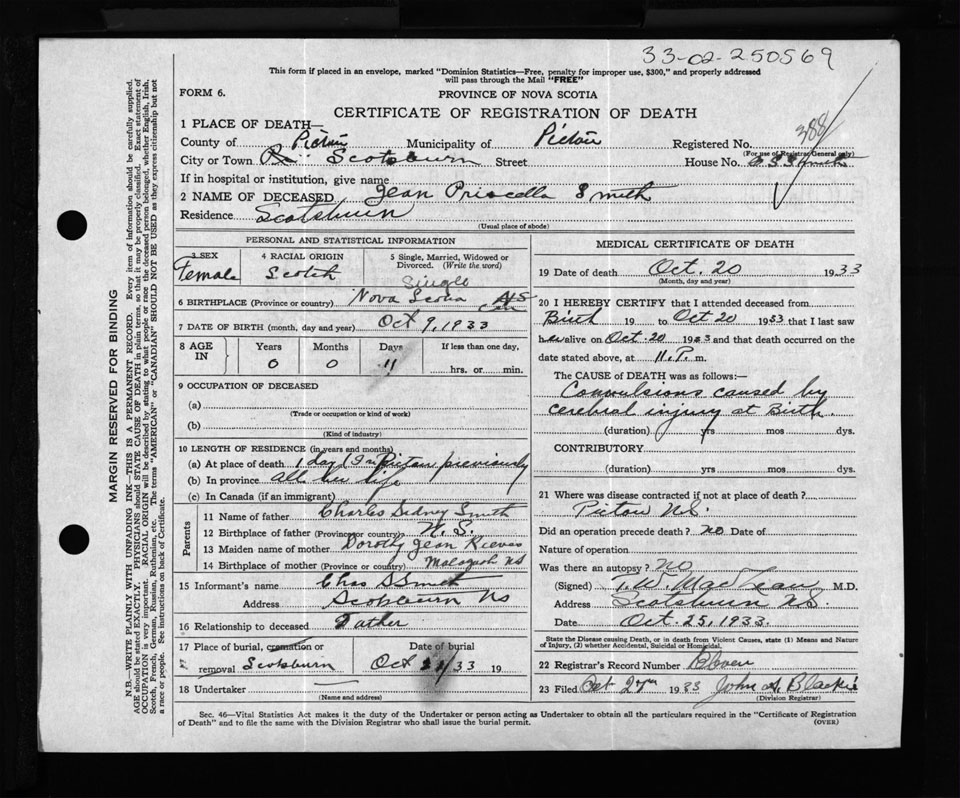 33-02-250569
This form if placed in an envelope, marked "Dominion Statistics—Free, penalty for improper use, $300," and properly addressed
will pass through the Mail "FREE"
FORM 6.
PROVINCE OF NOVA SCOTIA
CERTIFICATE OF REGISTRATION OF DEATH
388
1 PLACE OF DEATH—
County of Pictou Municipality of Pictou Registered No.
(For use of Registrar General only)
City or Town Scotsburn Street House No.
If in hospital or institution, give name
2 NAME OF DECEASED Jean Priscella Smith
Residence Scotsburn
(Usual place of abode)
PERSONAL AND STATISTICAL INFORMATION
3 SEX 4 RACIAL ORIGIN 5 Single, Married, Widowed or Divorced. (Write the word)
Female Scotch Single
6 BIRTHPLACE (Province or country) Nova Scotia
7 DATE OF BIRTH (month, day and year) Oct 9, 1933
8 AGE IN Years Months Days If less than one day,
0 0 11 hrs. or min.
9 OCCUPATION OF DECEASED
(a)
(Trade or occupation or kind of work)
(b)
(Kind of industry)
10 LENGTH OF RESIDENCE (in years and months)
(a) At place of death 1 day (In Pictou previously
(b) In province all her life
(c) In Canada (if an immigrant)
Parents
11 Name of father Charles Sidney Smith
12 Birthplace of father (Province or country) N. S.
13 Maiden name of mother Dorothy Jean
14 Birthplace of mother (Province or country) Malagash NS
15 Informant's name Chas S Smith
Address Scotsburn NS
16 Relationship to deceased Father
17 Place of burial, cremation or removal Date of burial
Scotsburn Oct 33 19
18 Undertaker
(Name and address)
MEDICAL CERTIFICATE OF DEATH
19 Date of death Oct. 20 1933
(Month, day and year)
20 I HEREBY CERTIFY that I attended deceased from
Birth 19 to Oct 20 1933 that I last saw
her alive on Oct. 20 1933 and that death occurred on the
date stated above, at 11. P. m.
The CAUSE of DEATH was as follows:—
Convulsions caused by
cerebral injury at Birth.
(duration) yrs mos. dys.
CONTRIBUTORY
(duration) yrs mos. dys.
21 Where was disease contracted if not at place of death?
Pictou NS.
Did an operation precede death? no Date of
Nature of operation
Was there an autopsy? No
(Signed) T. W. MacLean M.D.
Address Scotsburn NS.
Date Oct. 25, 1933.
State the Disease causing Death, or in death from Violent Causes, state (1) Means and Nature
of Injury, (2) whether Accidental, Suicidal or Homicidal.
22 Registrar's Record Number Eleven
23 Filed Oct 27th 1933 John A Blackie
(Division Registrar)
Sec. 46—Vital Statistics Act makes it the duty of the Undertaker or person acting as Undertaker to obtain all the particulars required in the "Certificate of Registration
of Death" and to file the same with the Division Registrar who shall issue the burial permit.
(OVER)
MARGIN RESERVED FOR BINDING
N.B.—WRITE PLAINLY WITH UNFADING INK—THIS IS A PERMANENT RECORD. Every item of information should be carefully supplied.
AGE should be stated EXACTLY. PHYSICIANS should STATE CAUSE OF DEATH in plain terms, so that it may be properly classified. Exact statement of
OCCUPATION is very important. RACIAL ORIGIN will be described by stating to what people or race the deceased person belonged, whether English, Irish,
Scotch, French, German, Russian, Ruthenian, etc. The terms "AMERICAN" or "CANADIAN" SHOULD NOT BE USED as they express citizenship but not
a race or people. See instructions on back of Certificate.